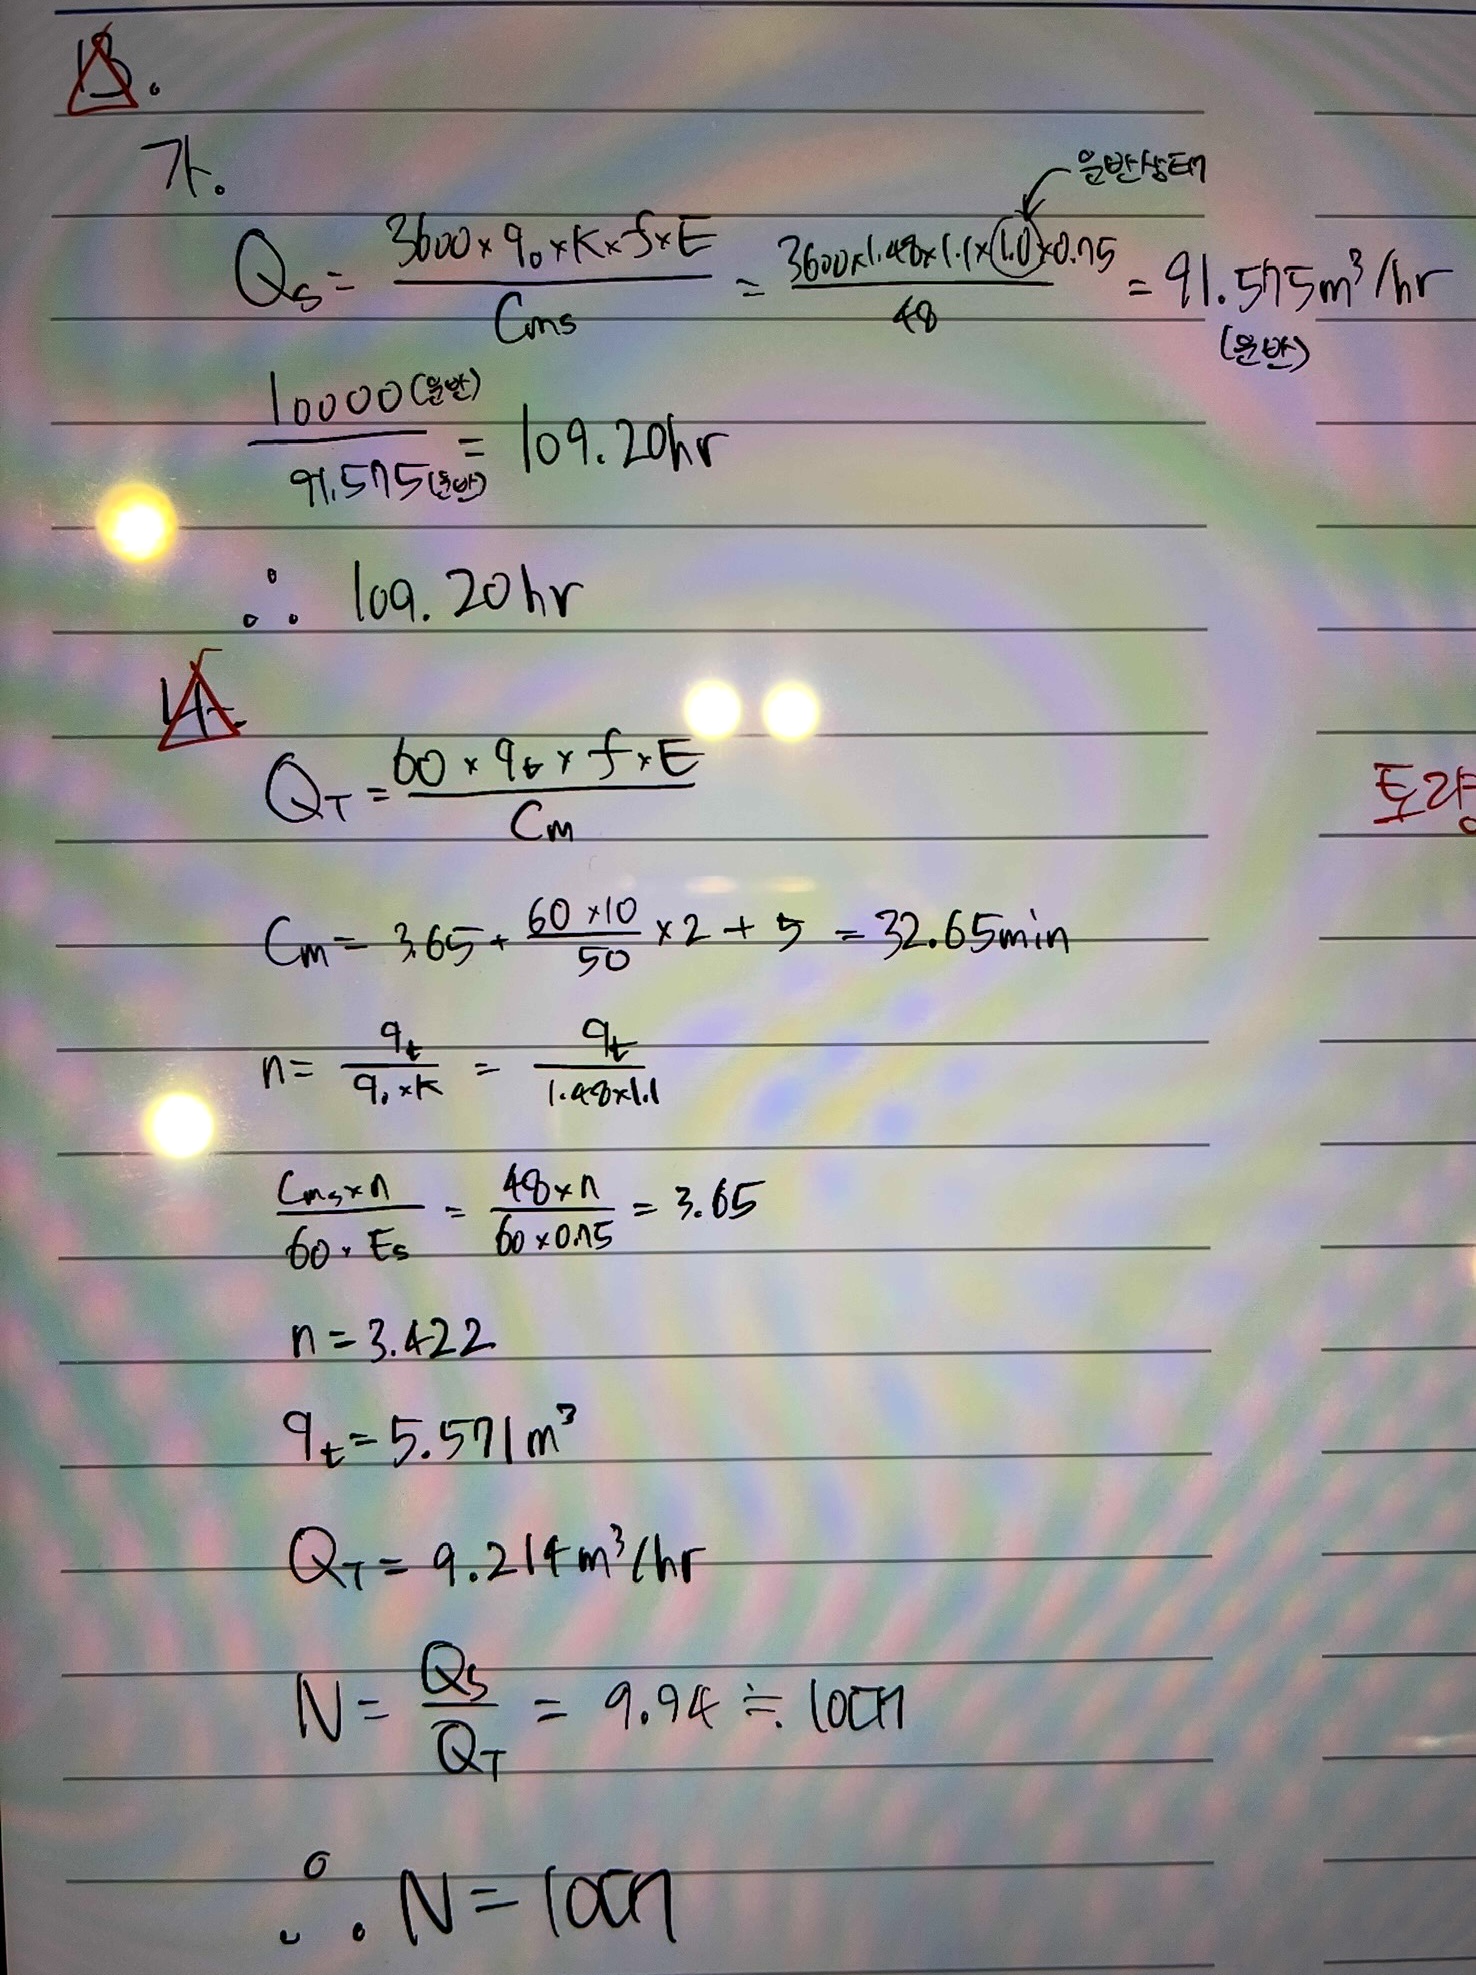 13.
가.
운반상태
Qs = 3600 × q₀ × K × f × E / Cms = 3600×1.48×1.1×1.0×0.75 / 48 = 91.575m³/hr
(운반)
10000(운반) / 91.575(운반) = 109.20hr
∴ 109.20hr
나.
QT = 60 × qt × f × E / Cm
토량
Cm = 3.65 + 60×10 / 50 × 2 + 5 = 32.65min
n = qt / q₀×K = qt / 1.48×1.1
Cms×n / 60×Es = 48×n / 60×0.75 = 3.65
n = 3.422
qt = 5.571m³
QT = 9.214m³/hr
N = Qs / QT = 9.94 ≒ 10대
∴ N = 10대